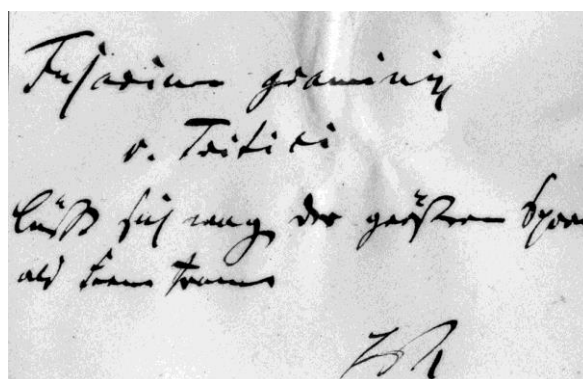 Fusarium graminis
v. Tritici
läßt sich nach der größeren Spor
als